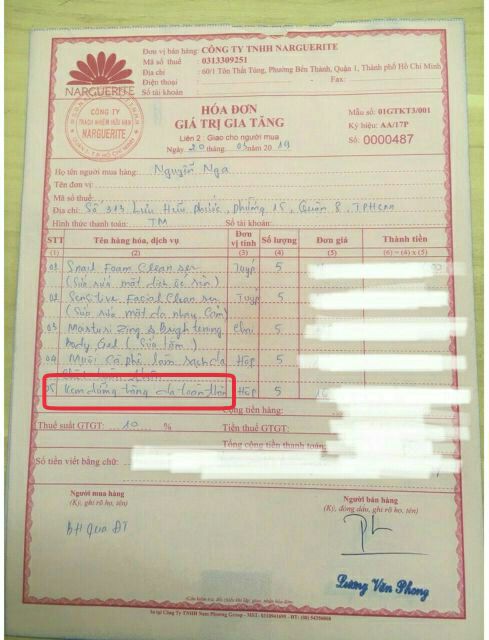 NARGUERITE
Đơn vị bán hàng: CÔNG TY TNHH NARGUERITE
Mã số thuế : 0313309251
Địa chỉ : 60/1 Tôn Thất Tùng, Phường Bến Thành, Quận 1, Thành phố Hồ Chí Minh
Điện thoại : Fax:
Số tài khoản :
CÔNG TY
TRÁCH NHIỆM HỮU HẠN
NARGUERITE
HÓA ĐƠN
GIÁ TRỊ GIA TĂNG
Liên 2 : Giao cho người mua
Ngày 20 tháng 03 năm 2019
Mẫu số: 01GTKT3/001
Ký hiệu: AA/17P
Số: 0000487
Họ tên người mua hàng: Nguyễn Nga
Tên đơn vị:
Mã số thuế:
Địa chỉ: Số 313 Lưu Hữu Phước, phường 15, Quận 8, TPHCM
Hình thức thanh toán: TM Số tài khoản:
STT Tên hàng hóa, dịch vụ Đơn vị tính Số lượng Đơn giá Thành tiền
(1) (2) (3) (4) (5) (6) = (4) x (5)
01 Snail Foam Cleanser Tuýp 5
(Sữa rửa mặt dịch ốc sên)
02 Sensitive Facial Cleanser Tuýp 5
(Sữa rửa mặt da nhạy cảm)
03 Moisturizing & Brightening Chai 5
Body Gel (Sữa tắm)
04 Muối Cà phê làm sạch da Hộp 5
05 Kem dưỡng trắng da toàn thân Hộp 5
Cộng tiền hàng:
Thuế suất GTGT: 10 % Tiền thuế GTGT:
Tổng cộng tiền thanh toán:
Số tiền viết bằng chữ:
Người mua hàng Người bán hàng
(Ký, ghi rõ họ, tên) (Ký, đóng dấu, ghi rõ họ, tên)
BH Qua ĐT
Lương Văn Phong
(Cần kiểm tra, đối chiếu khi lập, giao, nhận hóa đơn)